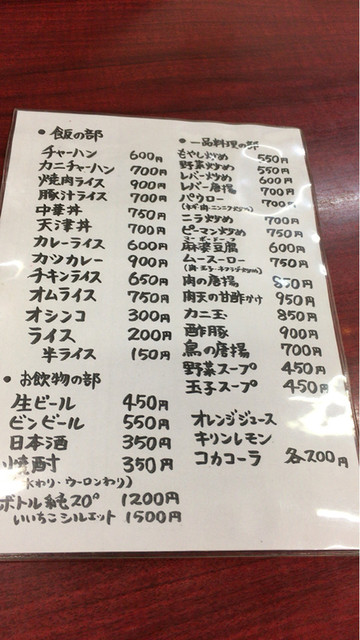 • 飯の部
チャーハン 600円
カニチャーハン 700円
焼肉ライス 900円
豚汁ライス 700円
中華丼 750円
天津丼 700円
カレーライス 600円
カツカレー 900円
チキンライス 650円
オムライス 750円
オシンコ 300円
ライス 200円
半ライス 150円
• お飲物の部
生ビール 450円
ビンビール 550円
日本酒 350円
焼酎 350円
(水わり・ウーロンわり)
ボトル純20° 1200円
いいちこシルエット 1500円
• 一品料理の部
もやし炒め 550円
野菜炒め 550円
レバー炒め 600円
レバー唐揚 700円
パウロー 700円
ニラ炒め 700円
ピーマン炒め 750円
麻婆豆腐 600円
ムースーロー 750円
肉の唐揚 850円
肉天の甘酢かけ 950円
カニ玉 850円
酢豚 900円
鳥の唐揚 700円
野菜スープ 450円
玉子スープ 450円
オレンジジュース
キリンレモン
コカコーラ 各200円